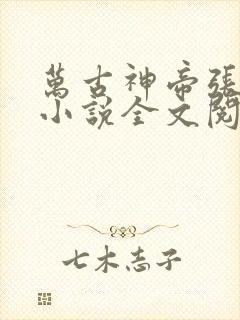 萬古神帝張
小說全文閱
七木志子